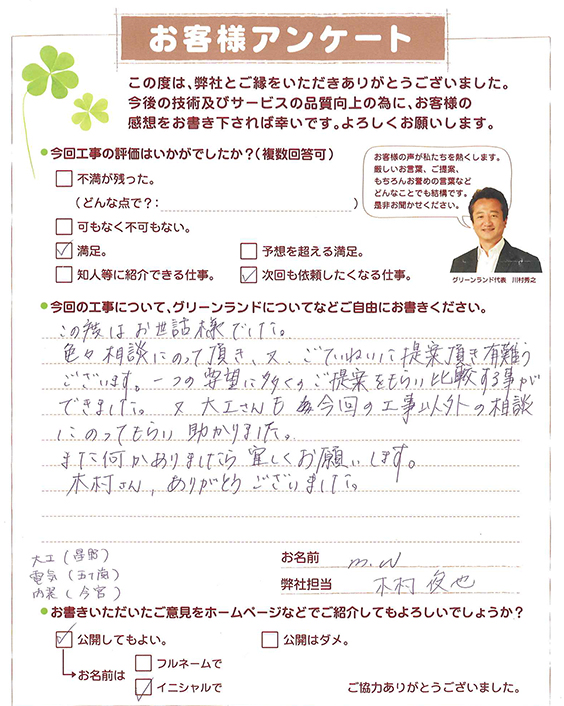 お客様アンケート
この度は、弊社とご縁をいただきありがとうございました。
今後の技術及びサービスの品質向上の為に、お客様の
感想をお書き下されば幸いです。よろしくお願いします。
●今回工事の評価はいかがでしたか？（複数回答可）
不満が残った。
（どんな点で？：　　　　　）
可もなく不可もない。
満足。
予想を超える満足。
知人等に紹介できる仕事。
次回も依頼したくなる仕事。
お客様の声が私たちを熱くします。
厳しいお言葉、ご提案、
もちろんお誉めの言葉など
どんなことでも結構です。
是非お聞かせください。
グリーンランド代表　川村秀之
●今回の工事について、グリーンランドについてなどご自由にお書きください。
この度はお世話様でした。
色々相談にのって頂き、又、ごていねいに提案頂き有難う
ございます。一つの要望に多くのご提案をもらい比較する事が
できました。又 大工さんも 今回の工事以外の相談
にのってもらい 助かりました。
また何かありましたら 宜しくお願いします。
木村さん、ありがとうございました。
大工（星野）
電気（五十嵐）
内装（今宮）
お名前　m.w
弊社担当　木村 俊也
●お書きいただいたご意見をホームページなどでご紹介してもよろしいでしょうか？
公開してもよい。
公開はダメ。
お名前は
フルネームで
イニシャルで
ご協力ありがとうございました。